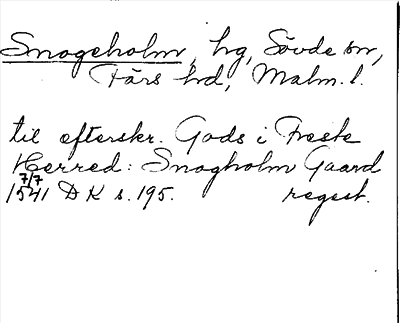 Snogeholm, hg, Sövde sn,
Färs hd, Malm. l.
til efterskr. Gods i Freste
Herred: Snogholm Gaard
7/7
1541 DK s. 195. regest.